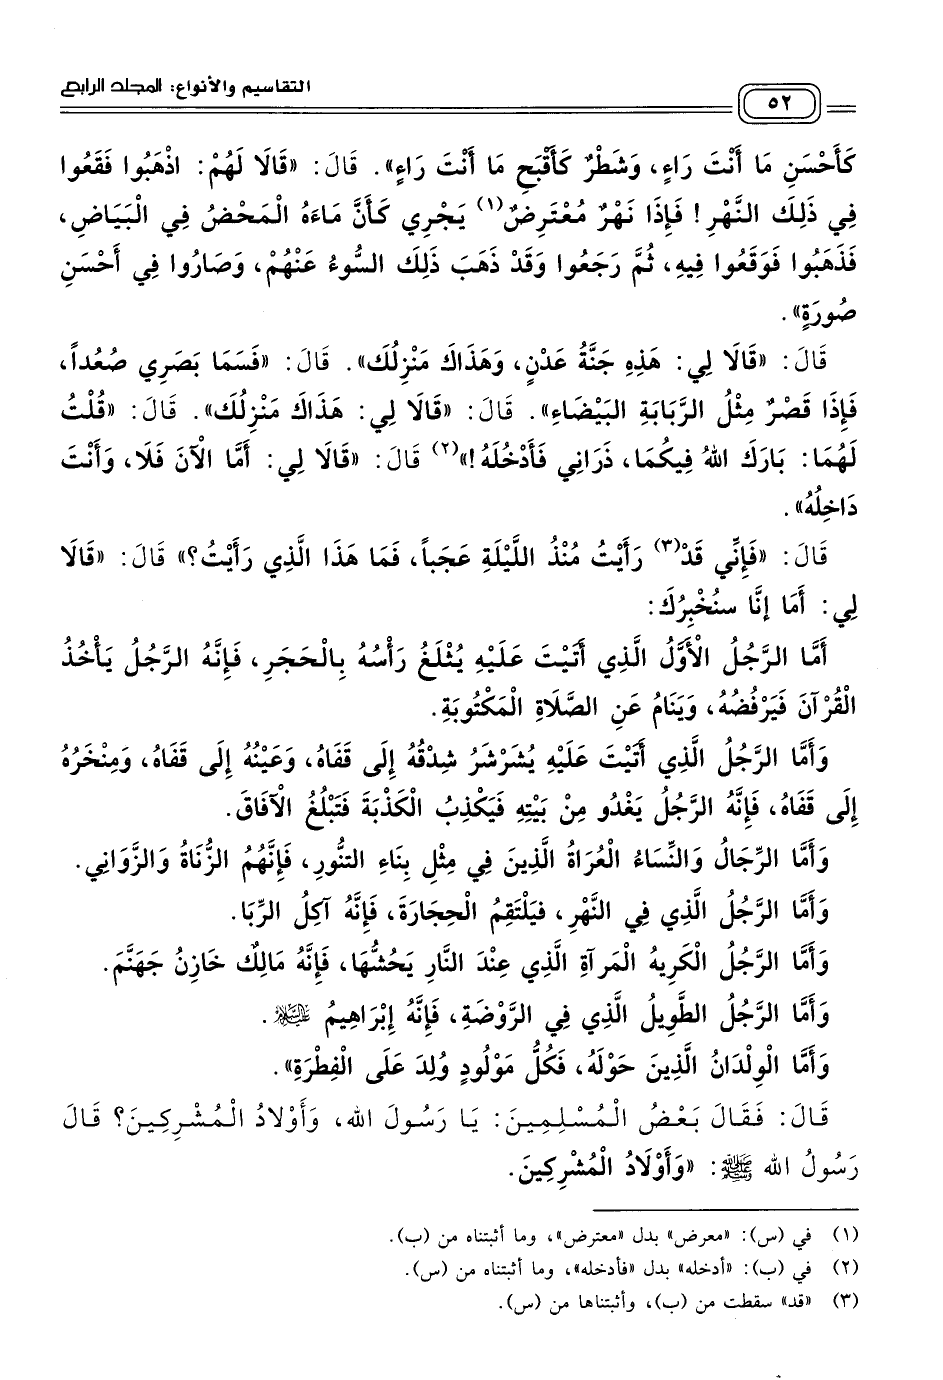 التقاسيم والأنواع: المجلد الرابع
٥٢
كَأَحْسَنِ مَا أَنْتَ رَاءٍ، وَشَطْرٌ كَأَقْبَحِ مَا أَنْتَ رَاءٍ». قَالَ: «قَالَا لَهُمْ: اذْهَبُوا فَقَعُوا
فِي ذَلِكَ النَّهْرِ! فَإِذَا نَهْرٌ مُعْتَرِضٌ(١) يَجْرِي كَأَنَّ مَاءَهُ الْمَحْضُ فِي الْبَيَاضِ،
فَذَهَبُوا فَوَقَعُوا فِيهِ، ثُمَّ رَجَعُوا وَقَدْ ذَهَبَ ذَلِكَ السُّوءُ عَنْهُمْ، وَصَارُوا فِي أَحْسَنِ
صُورَةٍ».
قَالَ: «قَالَا لِي: هَذِهِ جَنَّةُ عَدْنٍ، وَهَذَاكَ مَنْزِلُكَ». قَالَ: «فَسَمَا بَصَرِي صُعُداً،
فَإِذَا قَصْرٌ مِثْلُ الرَّبَابَةِ الْبَيْضَاءِ». قَالَ: «قَالَا لِي: هَذَاكَ مَنْزِلُكَ». قَالَ: «قُلْتُ
لَهُمَا: بَارَكَ اللهُ فِيكُمَا، ذَرَانِي فَأَدْخُلَهُ!»(٢) قَالَ: «قَالَا لِي: أَمَّا الْآنَ فَلَا، وَأَنْتَ
دَاخِلُهُ».
قَالَ: «فَإِنِّي قَدْ(٣) رَأَيْتُ مُنْذُ اللَّيْلَةِ عَجَباً، فَمَا هَذَا الَّذِي رَأَيْتُ؟» قَالَ: «قَالَا
لِي: أَمَا إِنَّا سنُخْبِرُكَ:
أَمَّا الرَّجُلُ الْأَوَّلُ الَّذِي أَتَيْتَ عَلَيْهِ يُثْلَغُ رَأْسُهُ بِالْحَجَرِ، فَإِنَّهُ الرَّجُلُ يَأْخُذُ
الْقُرْآنَ فَيَرْفُضُهُ، وَيَنَامُ عَنِ الصَّلَاةِ الْمَكْتُوبَةِ.
وَأَمَّا الرَّجُلُ الَّذِي أَتَيْتَ عَلَيْهِ يُشَرْشَرُ شِدْقُهُ إِلَى قَفَاهُ، وَعَيْنُهُ إِلَى قَفَاهُ، وَمِنْخَرُهُ
إِلَى قَفَاهُ، فَإِنَّهُ الرَّجُلُ يَغْدُو مِنْ بَيْتِهِ فَيَكْذِبُ الْكَذْبَةَ فَتَبْلُغُ الْآفَاقَ.
وَأَمَّا الرِّجَالُ وَالنِّسَاءُ الْعُرَاةُ الَّذِينَ فِي مِثْلِ بِنَاءِ التنُّورِ، فَإِنَّهُمُ الزُّنَاةُ وَالزَّوَانِي.
وَأَمَّا الرَّجُلُ الَّذِي فِي النَّهْرِ، فَيَلْتَقِمُ الْحِجَارَةَ، فَإِنَّهُ آكِلُ الرِّبَا.
وَأَمَّا الرَّجُلُ الْكَرِيهُ الْمَرآةِ الَّذِي عِنْدَ النَّارِ يَحُشُّهَا، فَإِنَّهُ مَالِكٌ خَازِنُ جَهَنَّمَ.
وَأَمَّا الرَّجُلُ الطَّوِيلُ الَّذِي فِي الرَّوْضَةِ، فَإِنَّهُ إِبْرَاهِيمُ عليه السلام.
وَأَمَّا الْوِلْدَانُ الَّذِينَ حَوْلَهُ، فَكُلُّ مَوْلُودٍ وُلِدَ عَلَى الْفِطْرَةِ».
قَالَ: فَقَالَ بَعْضُ الْمُسْلِمِينَ: يَا رَسُولَ اللهِ، وَأَوْلَادُ الْمُشْرِكِينَ؟ قَالَ
رَسُولُ اللهِ ﷺ: «وَأَوْلَادُ الْمُشْرِكِينَ.
(١) في (س): «معرض» بدل «معترض»، وما أثبتناه من (ب).
(٢) في (ب): «أدخله» بدل «فأدخله»، وما أثبتناه من (س).
(٣) «قد» سقطت من (ب)، وأثبتناها من (س).